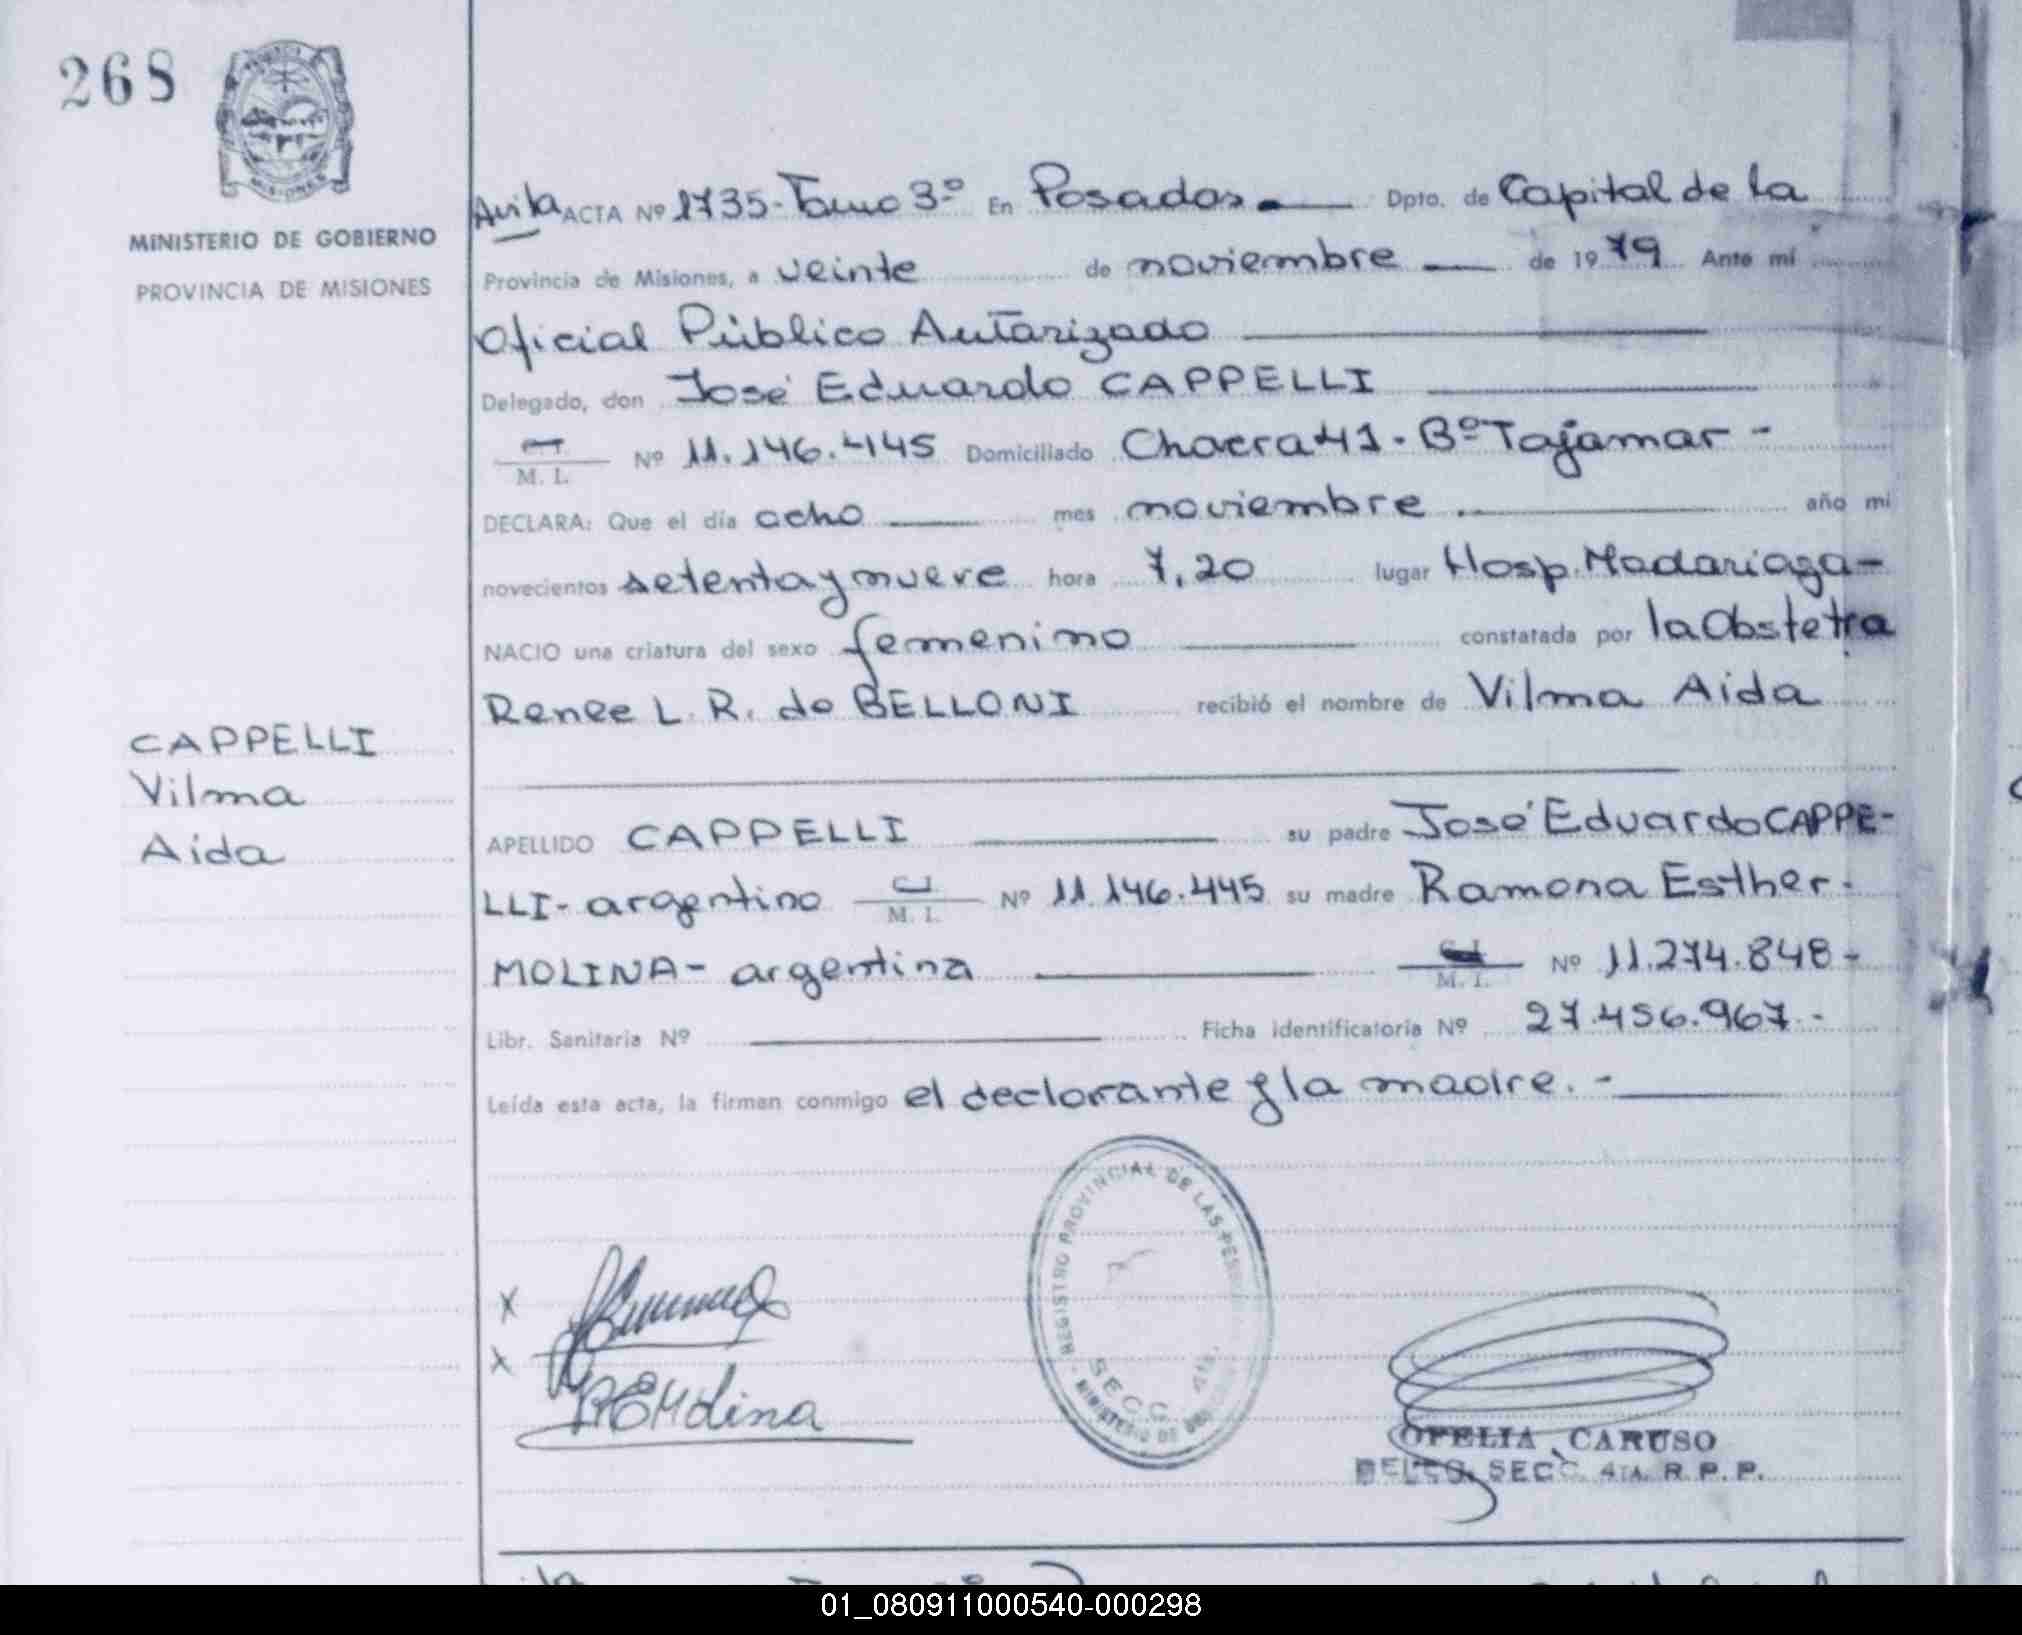 268
MISIONES
MINISTERIO DE GOBIERNO
PROVINCIA DE MISIONES
Avila ACTA Nº 1735-Tomo 3º En Posadas. Dpto. de Capital de la
Provincia de Misiones, a veinte de noviembre de 1979 Ante mí
Oficial Público Autorizado
Delegado, don José Eduardo CAPPELLI
M. I. Nº 11.146.445 Domiciliado Chacra 41 - Bº Tajamar -
DECLARA: Que el día ocho mes noviembre año mi
novecientos setenta y nueve hora 7,20 lugar Hosp. Madariaga-
NACIO una criatura del sexo femenino constatada por la Obstetra
Renee L. R. de BELLONI recibió el nombre de Vilma Aida
CAPPELLI
Vilma
Aida
APELLIDO CAPPELLI su padre José Eduardo CAPPE-
LLI- argentino C.I. M. I. Nº 11.146.445 su madre Ramona Esther-
MOLINA- argentina M. I. Nº 11.274.848-
Libr. Sanitaria Nº Ficha identificatoria Nº 27.456.967.-
Leída esta acta, la firman conmigo el declarante y la madre.-
REGISTRO PROVINCIAL DE LAS
SECC. 4ta.
MINISTERIO DE
X
X
R E Molina
OFELIA CARUSO
DELEG. SECC. 4TA. R. P. P.
01_080911000540-000298